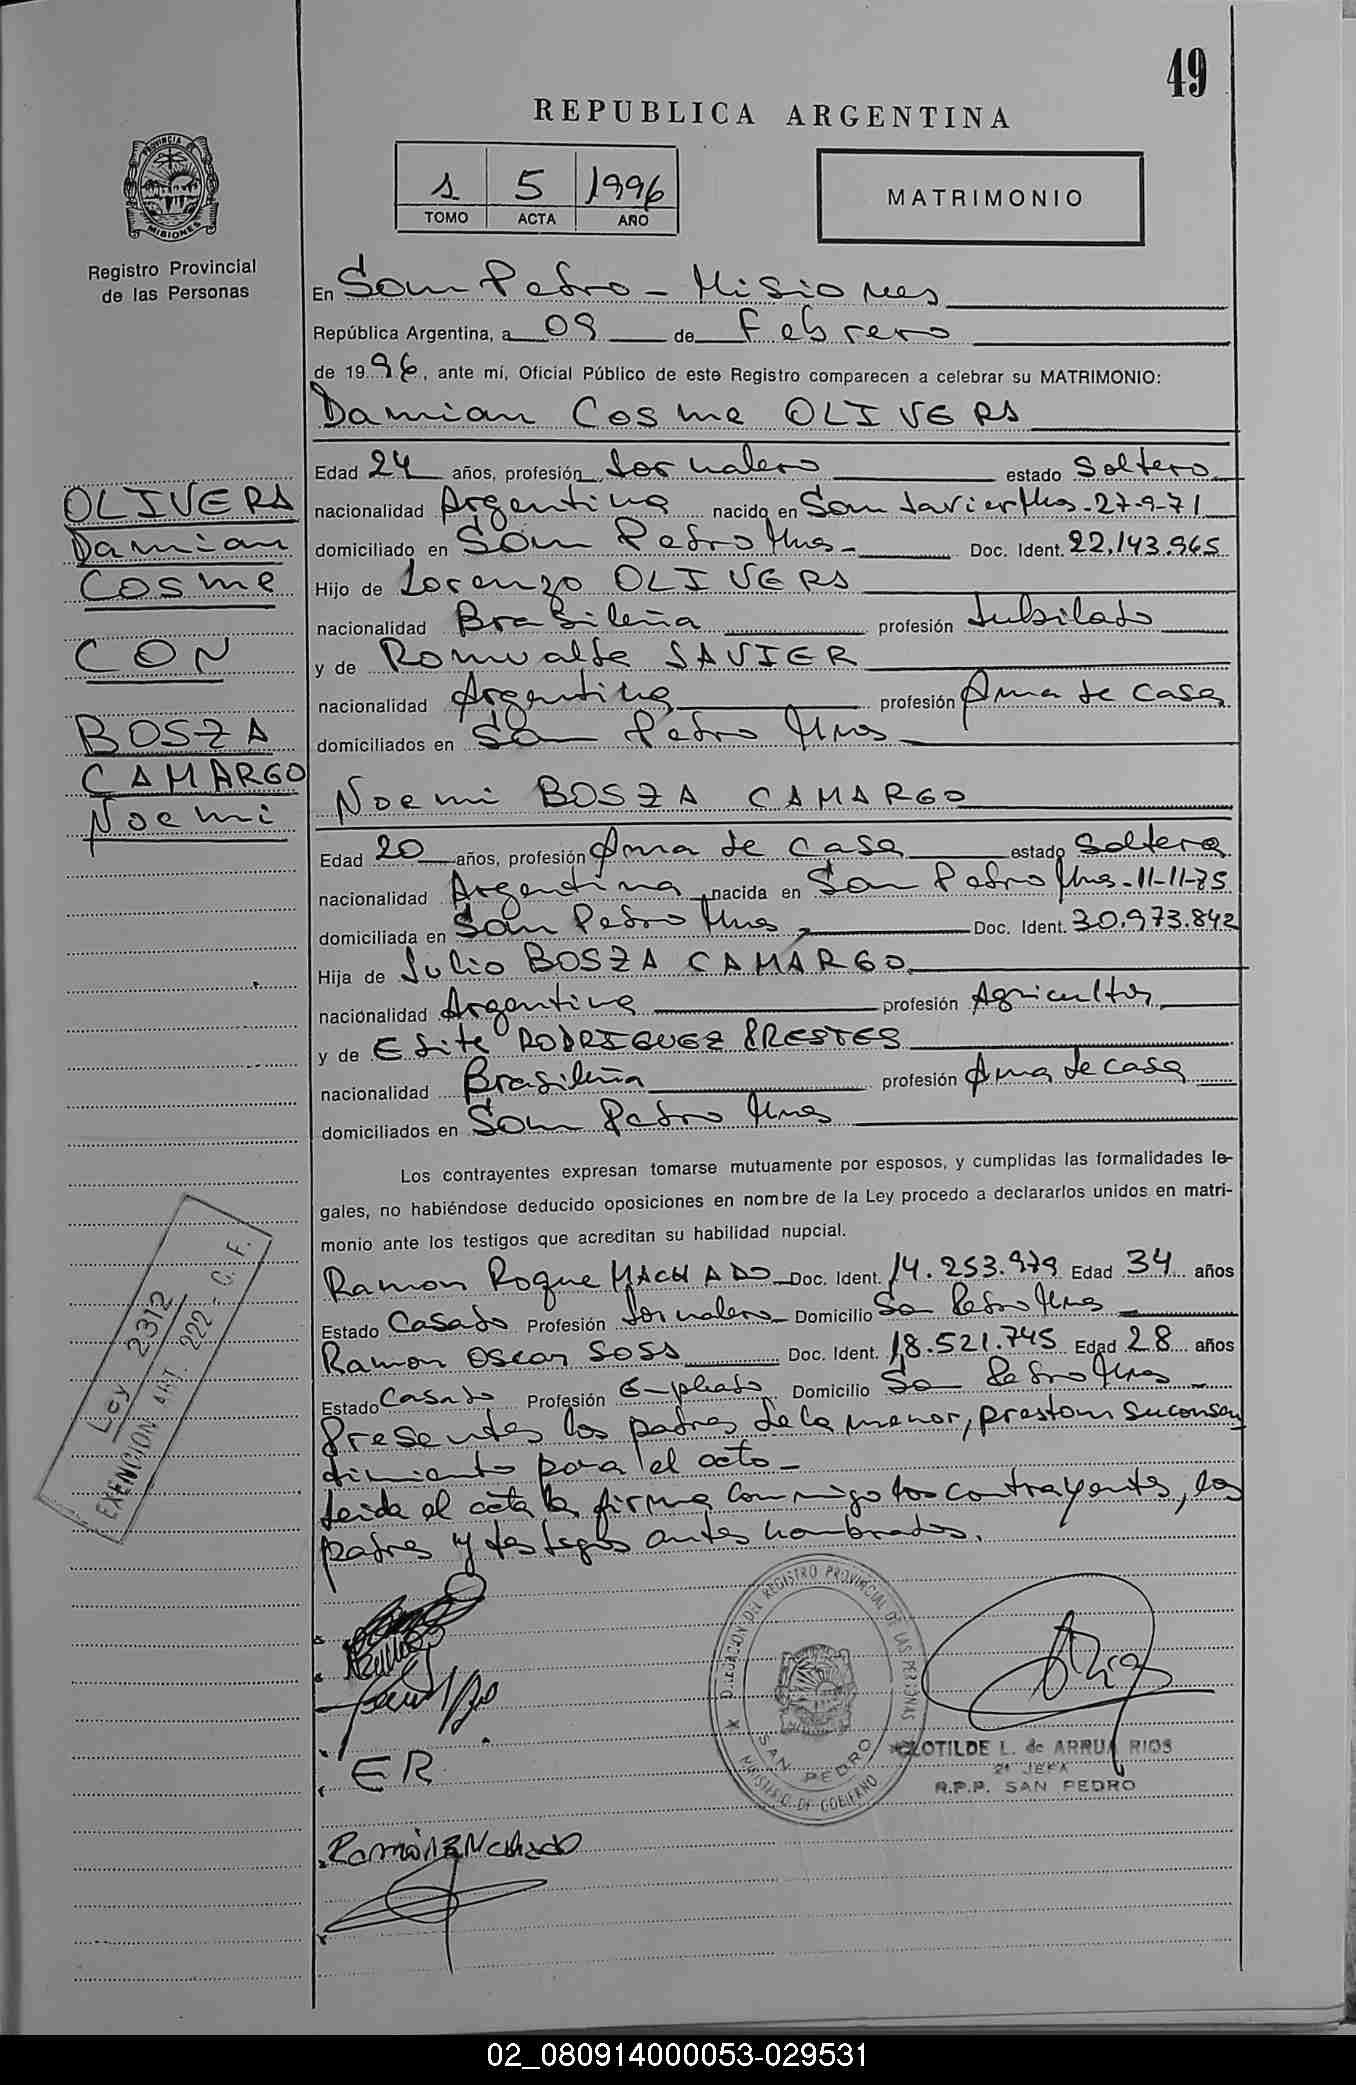 49
REPUBLICA ARGENTINA
1 5 1996
TOMO ACTA AÑO
MATRIMONIO
PROVINCIA DE
MISIONES
Registro Provincial
de las Personas
En San Pedro - Misiones
República Argentina, a 09 de Febrero
de 19 96, ante mí, Oficial Público de este Registro comparecen a celebrar su MATRIMONIO:
Damian Cosme OLIVERA
Edad 24 años, profesión Jornalero estado Soltero
nacionalidad Argentina nacido en San Javier Mnes - 27-9-71
domiciliado en San Pedro Mnes - Doc. Ident. 22.143.965
Hijo de Lorenzo OLIVERA
nacionalidad Brasileña profesión Jubilado
y de Romualda SAVIER
nacionalidad Argentina profesión Ama de casa
domiciliados en San Pedro Mnes
OLIVERA
Damian
Cosme
CON
BOSZA
CAMARGO
Noemi
Noemi BOSZA CAMARGO
Edad 20 años, profesión Ama de casa estado Soltera
nacionalidad Argentina nacida en San Pedro Mnes - 11-11-75
domiciliada en San Pedro Mnes Doc. Ident. 30.973.842
Hija de Julio BOSZA CAMARGO
nacionalidad Argentina profesión Agricultor
y de Edite RODRIGUEZ PRESTES
nacionalidad Brasileña profesión Ama de casa
domiciliados en San Pedro Mnes
Los contrayentes expresan tomarse mutuamente por esposos, y cumplidas las formalidades le-
gales, no habiéndose deducido oposiciones en nombre de la Ley procedo a declararlos unidos en matri-
monio ante los testigos que acreditan su habilidad nupcial.
Ramon Roque MACHADO Doc. Ident. 14.253.979 Edad 34 años
Estado Casado Profesión Jornalero Domicilio San Pedro Mnes
Ramon Oscar SOSA Doc. Ident. 18.521.745 Edad 28 años
Estado Casado Profesión Empleado Domicilio San Pedro Mnes
Presentes los padres de la menor, prestan su consen
timiento para el acto -
Leida el acta la firma conmigo los contrayentes, los
padres y testigos antes nombrados.
Ley 2312
EXENCION ART. 222 - C. F.
DIRECCION DEL REGISTRO PROVINCIAL DE LAS PERSONAS
SAN PEDRO
MINISTERIO DE GOBIERNO
CLOTILDE L. de ARRUA RIOS
2ª JEFA
R.P.P. SAN PEDRO
ER
Machado
02_080914000053-029531